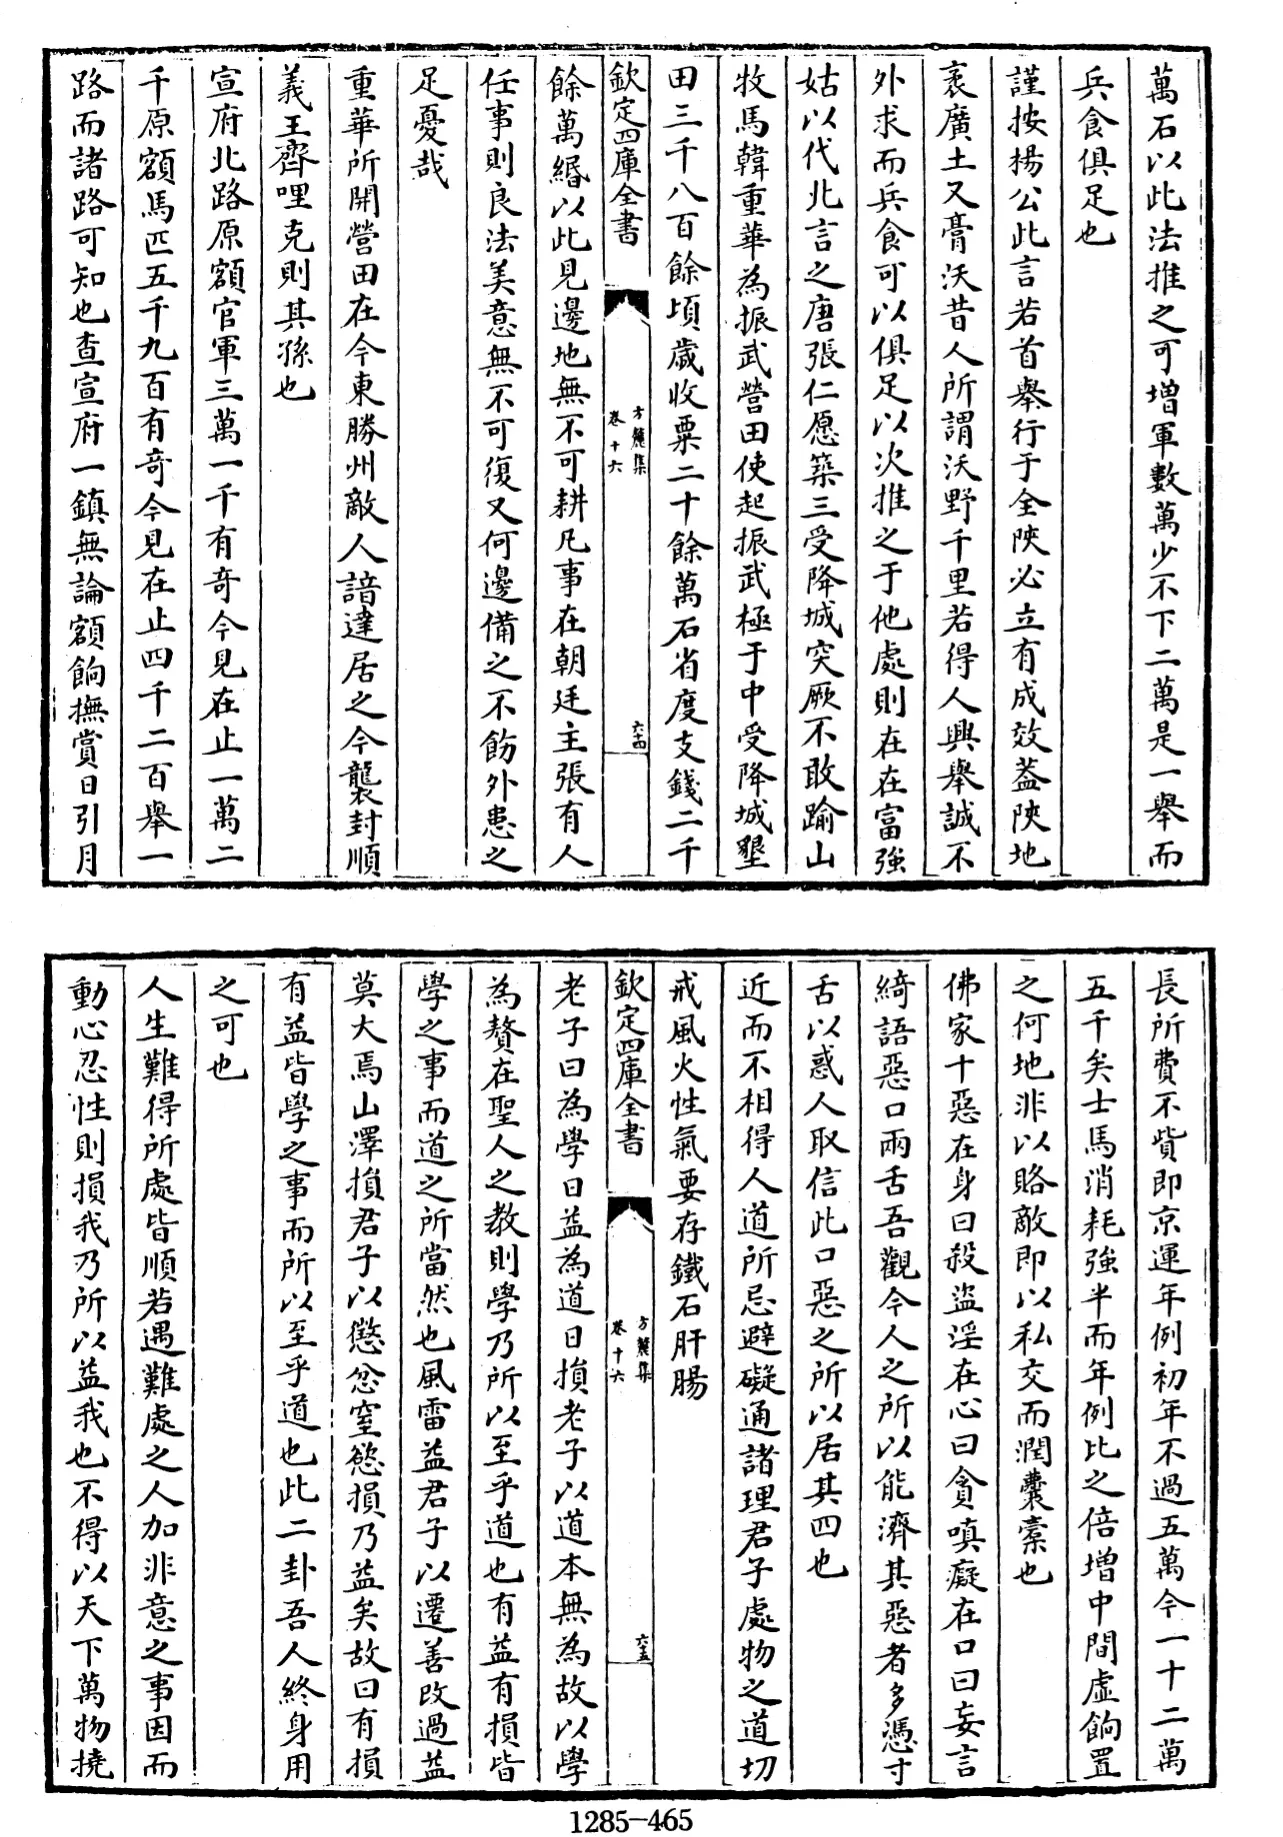 萬石以此法推之可增軍數萬少不下二萬是一舉而
兵食俱足也
謹按楊公此言若首舉行于全陜必立有成效葢陜地
袤廣土又膏沃昔人所謂沃野千里若得人興舉誠不
外求而兵食可以俱足以次推之于他處則在在富強
姑以代北言之唐張仁愿築三受降城突厥不敢踰山
牧馬韓重華為振武營田使起振武極于中受降城墾
田三千八百餘頃歲收粟二十餘萬石省度支錢二千
欽定四庫全書
方麓集
卷十六
六十四
餘萬緡以此見邊地無不可耕凡事在朝廷主張有人
任事則良法美意無不可復又何邊備之不飭外患之
足憂哉
重華所開營田在今東勝州敵人諳達居之今襲封順
義王齊哩克則其孫也
宣府北路原額官軍三萬一千有奇今見在止一萬二
千原額馬匹五千九百有奇今見在止四千二百舉一
路而諸路可知也查宣府一鎮無論額餉撫賞日引月
長所費不貲即京運年例初年不過五萬今一十二萬
五千矣士馬消耗強半而年例比之倍增中間虛餉置
之何地非以賂敵即以私交而潤囊橐也
佛家十惡在身曰殺盜淫在心曰貪嗔癡在口曰妄言
綺語惡口兩舌吾觀今人之所以能濟其惡者多憑寸
舌以惑人取信此口惡之所以居其四也
近而不相得人道所忌避礙通諸理君子處物之道切
戒風火性氣要存鐵石肝腸
欽定四庫全書
方麓集
卷十六
六十五
老子曰為學日益為道日損老子以道本無為故以學
為贅在聖人之教則學乃所以至乎道也有益有損皆
學之事而道之所當然也風雷益君子以遷善改過益
莫大焉山澤損君子以懲忿窒慾損乃益矣故曰有損
有益皆學之事而所以至乎道也此二卦吾人終身用
之可也
人生難得所處皆順若遇難處之人加非意之事因而
動心忍性則損我乃所以益我也不得以天下萬物撓
1285-465